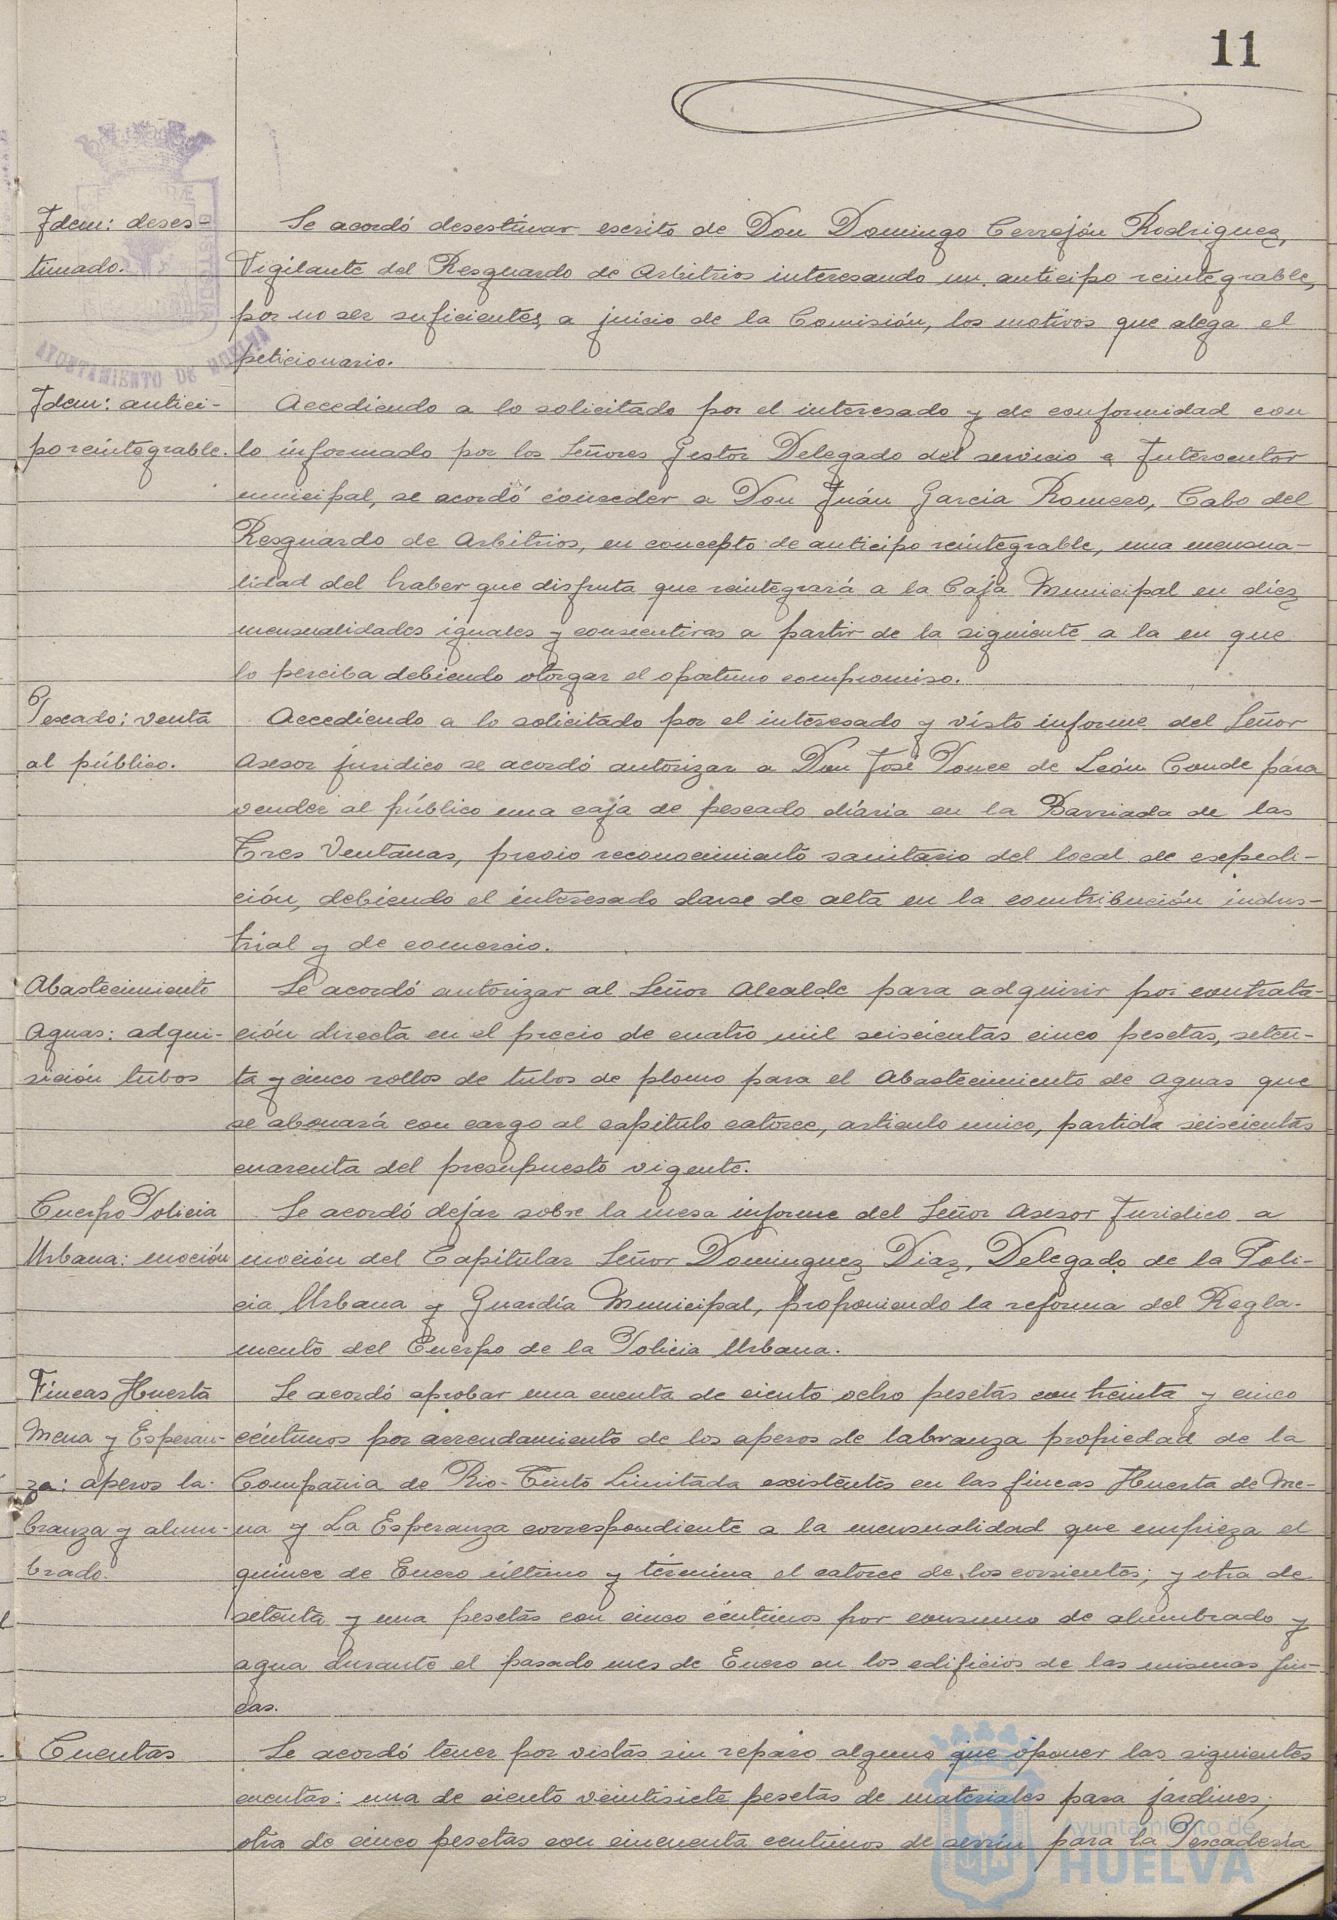 11
Idem: deses-
timado.
Se acordó desestimar escrito de Don Domingo Cerrejón Rodriguez,
Vigilante del Resguardo de Arbitrios interesando un anticipo reintegrable,
por no ser suficientes, a juicio de la Comisión, los motivos que alega el
peticionario.
AYUNTAMIENTO DE HUELVA
Idem: antici-
po reintegrable.
Accediendo a lo solicitado por el interesado y de conformidad con
lo informado por los Señores Gestor Delegado del servicio e Interventor
municipal, se acordó conceder a Don Juán Garcia Romero, Cabo del
Resguardo de Arbitrios, en concepto de anticipo reintegrable, una mensua-
lidad del haber que disfruta que reintegrará a la Caja Municipal en diez
mensualidades iguales y consecutivas a partir de la siguiente a la en que
lo perciba debiendo otorgar el oportuno compromiso.
Pescado: venta
al público.
Accediendo a lo solicitado por el interesado y visto informe del Señor
Asesor juridico se acordó autorizar a Don José Ponce de León Conde para
vender al público una caja de pescado diaria en la Barriada de las
Tres Ventanas, previo reconocimiento sanitario del local de expedi-
ción, debiendo el interesado darse de alta en la contribución indus-
trial y de comercio.
Abastecimiento
Aguas: adqui-
sición tubos
Se acordó autorizar al Señor Alcalde para adquirir por contrata-
ción directa en el precio de cuatro mil seiscientas cinco pesetas, seten-
ta y cinco rollos de tubos de plomo para el Abastecimiento de Aguas que
se abonará con cargo al capitulo catorce, articulo unico, partida seiscientas
cuarenta del presupuesto vigente.
Cuerpo Policia
Urbana: moción
Se acordó dejar sobre la mesa informe del Señor Asesor Juridico a
moción del Capitular Señor Dominguez Diaz, Delegado de la Poli-
cia Urbana y Guardia Municipal, proponiendo la reforma del Regla-
mento del Cuerpo de la Policia Urbana.
Fincas Huerta
Mena y Esperan-
za: aperos la-
branza y alum-
brado.
Se acordó aprobar una cuenta de ciento ocho pesetas con treinta y cinco
céntimos por arrendamiento de los aperos de labranza propiedad de la
Compañia de Rio-Tinto Limitada existentes en las fincas Huerta de Me-
na y La Esperanza correspondiente a la mensualidad que empieza el
quince de Enero último y termina el catorce de los corrientes; y otra de
setenta y una pesetas con cinco céntimos por consumo de alumbrado y
agua durante el pasado mes de Enero en los edificios de las mismas fin-
cas.
Cuentas
Se acordó tener por vistas sin reparo alguno que oponer las siguientes
cuentas: una de ciento veintisiete pesetas de materiales para jardines;
otra de cinco pesetas con cincuenta centimos de serrin para la Pescaderia
Ayuntamiento de
HUELVA